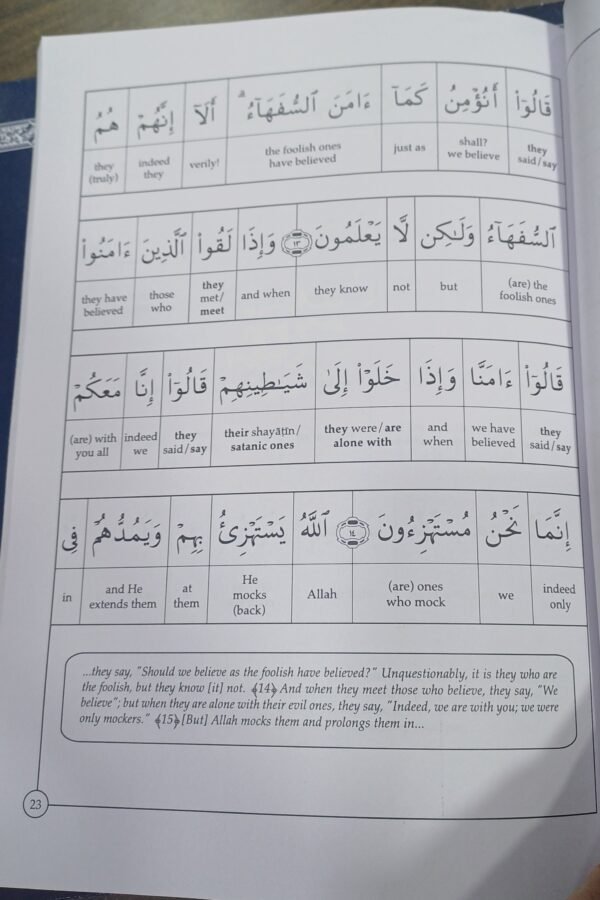 قَالُوٓا۟ أَنُؤْمِنُ كَمَآ ءَامَنَ ٱلسُّفَهَآءُ ۗ أَلَآ إِنَّهُمْ هُمُ
they said/say shall? we believe just as the foolish ones have believed verily! indeed they they (truly)
ٱلسُّفَهَآءُ وَلَـٰكِن لَّا يَعْلَمُونَ ١٣ وَإِذَا لَقُوا۟ ٱلَّذِينَ ءَامَنُوا۟
(are) the foolish ones but not they know and when they met/meet those who they have believed
قَالُوٓا۟ ءَامَنَّا وَإِذَا خَلَوْا۟ إِلَىٰ شَيَـٰطِينِهِمْ قَالُوٓا۟ إِنَّا مَعَكُمْ
they said/say we have believed and when they were/are alone with their shayāṭīn/satanic ones they said/say indeed we (are) with you all
إِنَّمَا نَحْنُ مُسْتَهْزِءُونَ ١٤ ٱللَّهُ يَسْتَهْزِئُ بِهِمْ وَيَمُدُّهُمْ فِى
indeed only we (are) ones who mock Allah He mocks (back) at them and He extends them in
...they say, "Should we believe as the foolish have believed?" Unquestionably, it is they who are
the foolish, but they know [it] not. ﴾14﴿ And when they meet those who believe, they say, "We
believe"; but when they are alone with their evil ones, they say, "Indeed, we are with you; we were
only mockers." ﴾15﴿ [But] Allah mocks them and prolongs them in...
23